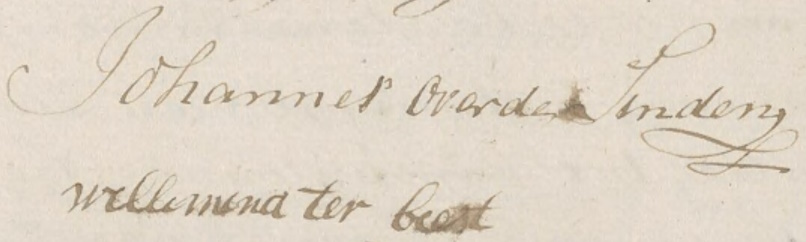 Johannes Overde Linden
willemina ter beest